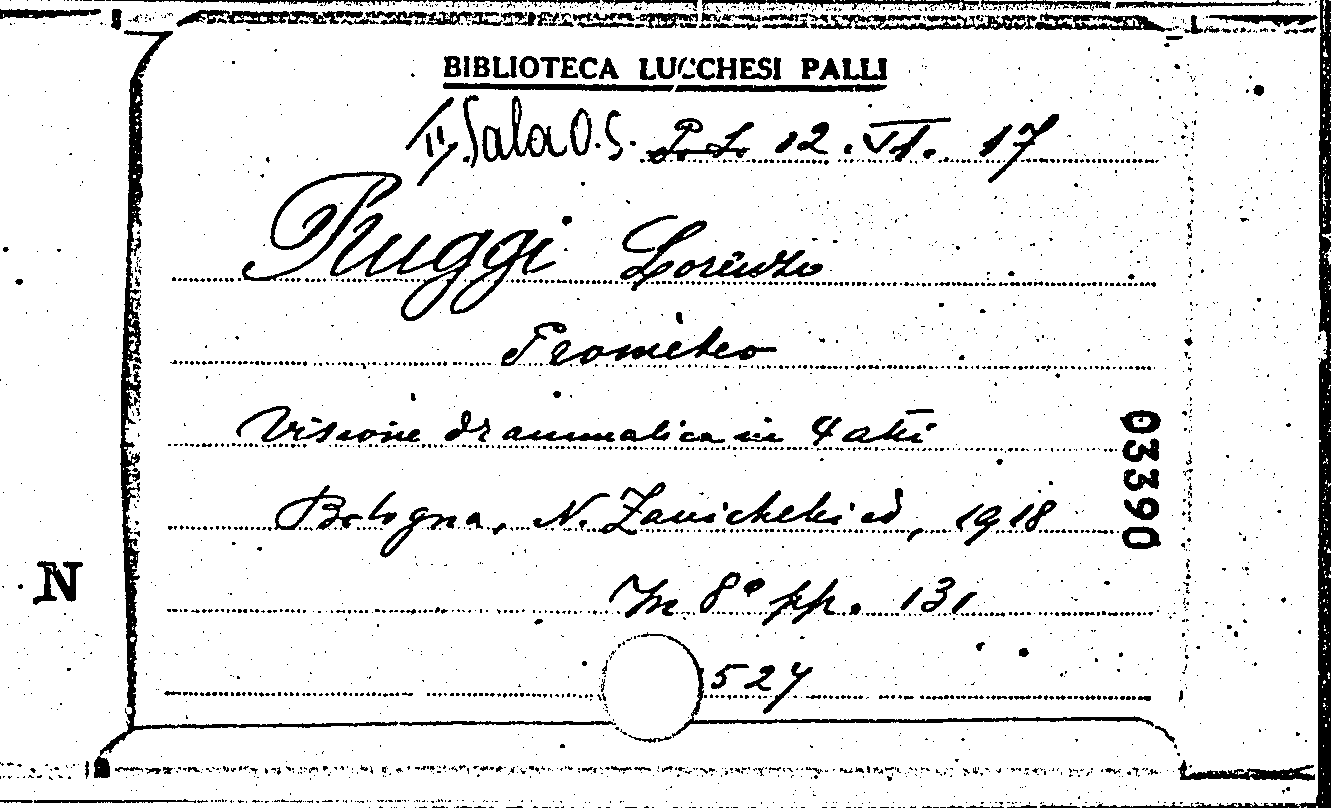 BIBLIOTECA LUCCHESI PALLI
II, Sala O.S. P.L. 12. VI. 17
Ruggi Lorenzo
Prometeo
Visione drammatica in 4 atti
Bologna, N. Zanichelli ed, 1918
In 8° pp. 131
527
03390
N